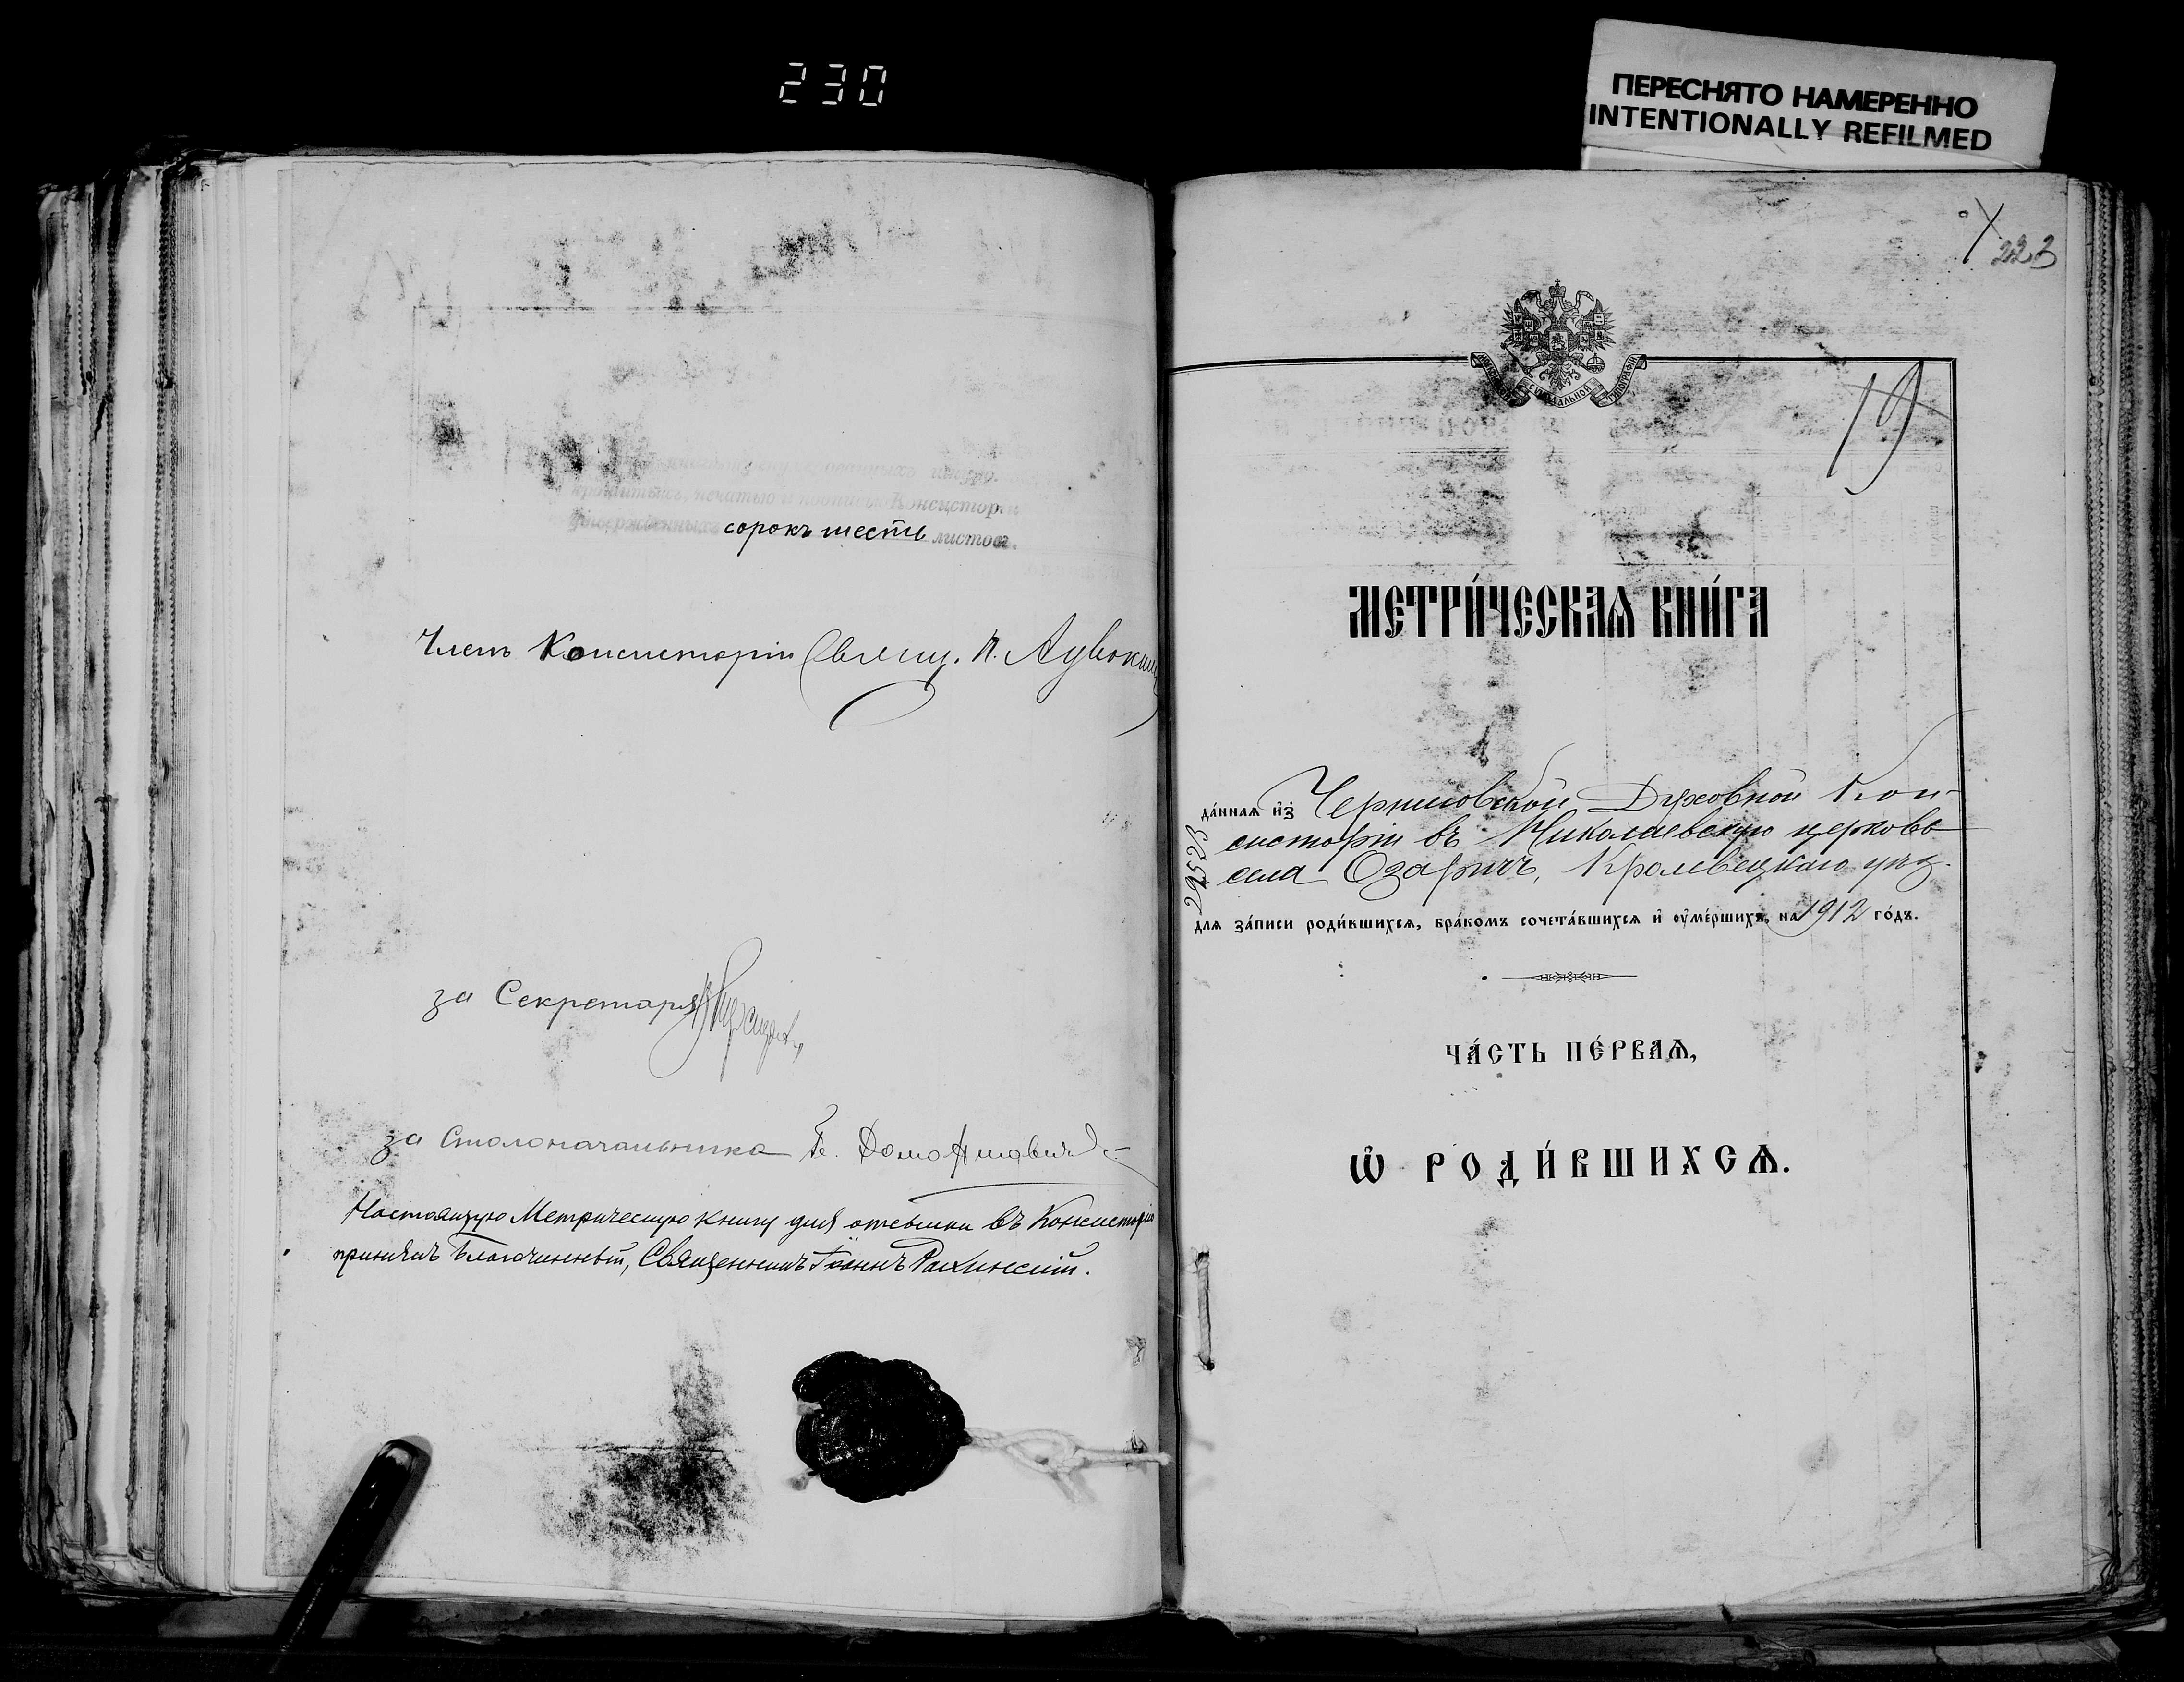 230
ПЕРЕСНЯТО НАМЕРЕННО
INTENTIONALLY REFILMED
шнуро.
печатью и подписью Консисторіи
сорокъ шесть листовъ.
Членъ Консисторіи Свящ. П.
за Секретаря
за Столоначальника
Настоящую Метрическую книгу для отсылки въ Консисторію
принялъ Благочинный, Священникъ Іоаннъ
223
СѴНОДАЛЬНОЙ ТИПОГРАФІИ
19
МЕТРИ́ЧЕСКАѦ КНИ́ГА
да́ннаѧ и҆з̾ Черниговской Духовной Кон-
систоріи въ Николаевскую церковь
села Озаричъ, Кролевецкаго уѣз.
29523
длѧ за́писи роди́вшихсѧ, бра́комъ сочета́вшихсѧ и҆ ѹ҆ме́ршихъ, на 1912 го́дъ.
ЧА́СТЬ ПЕ́РВАѦ,
Ѽ РОДИ́ВШИХСѦ.